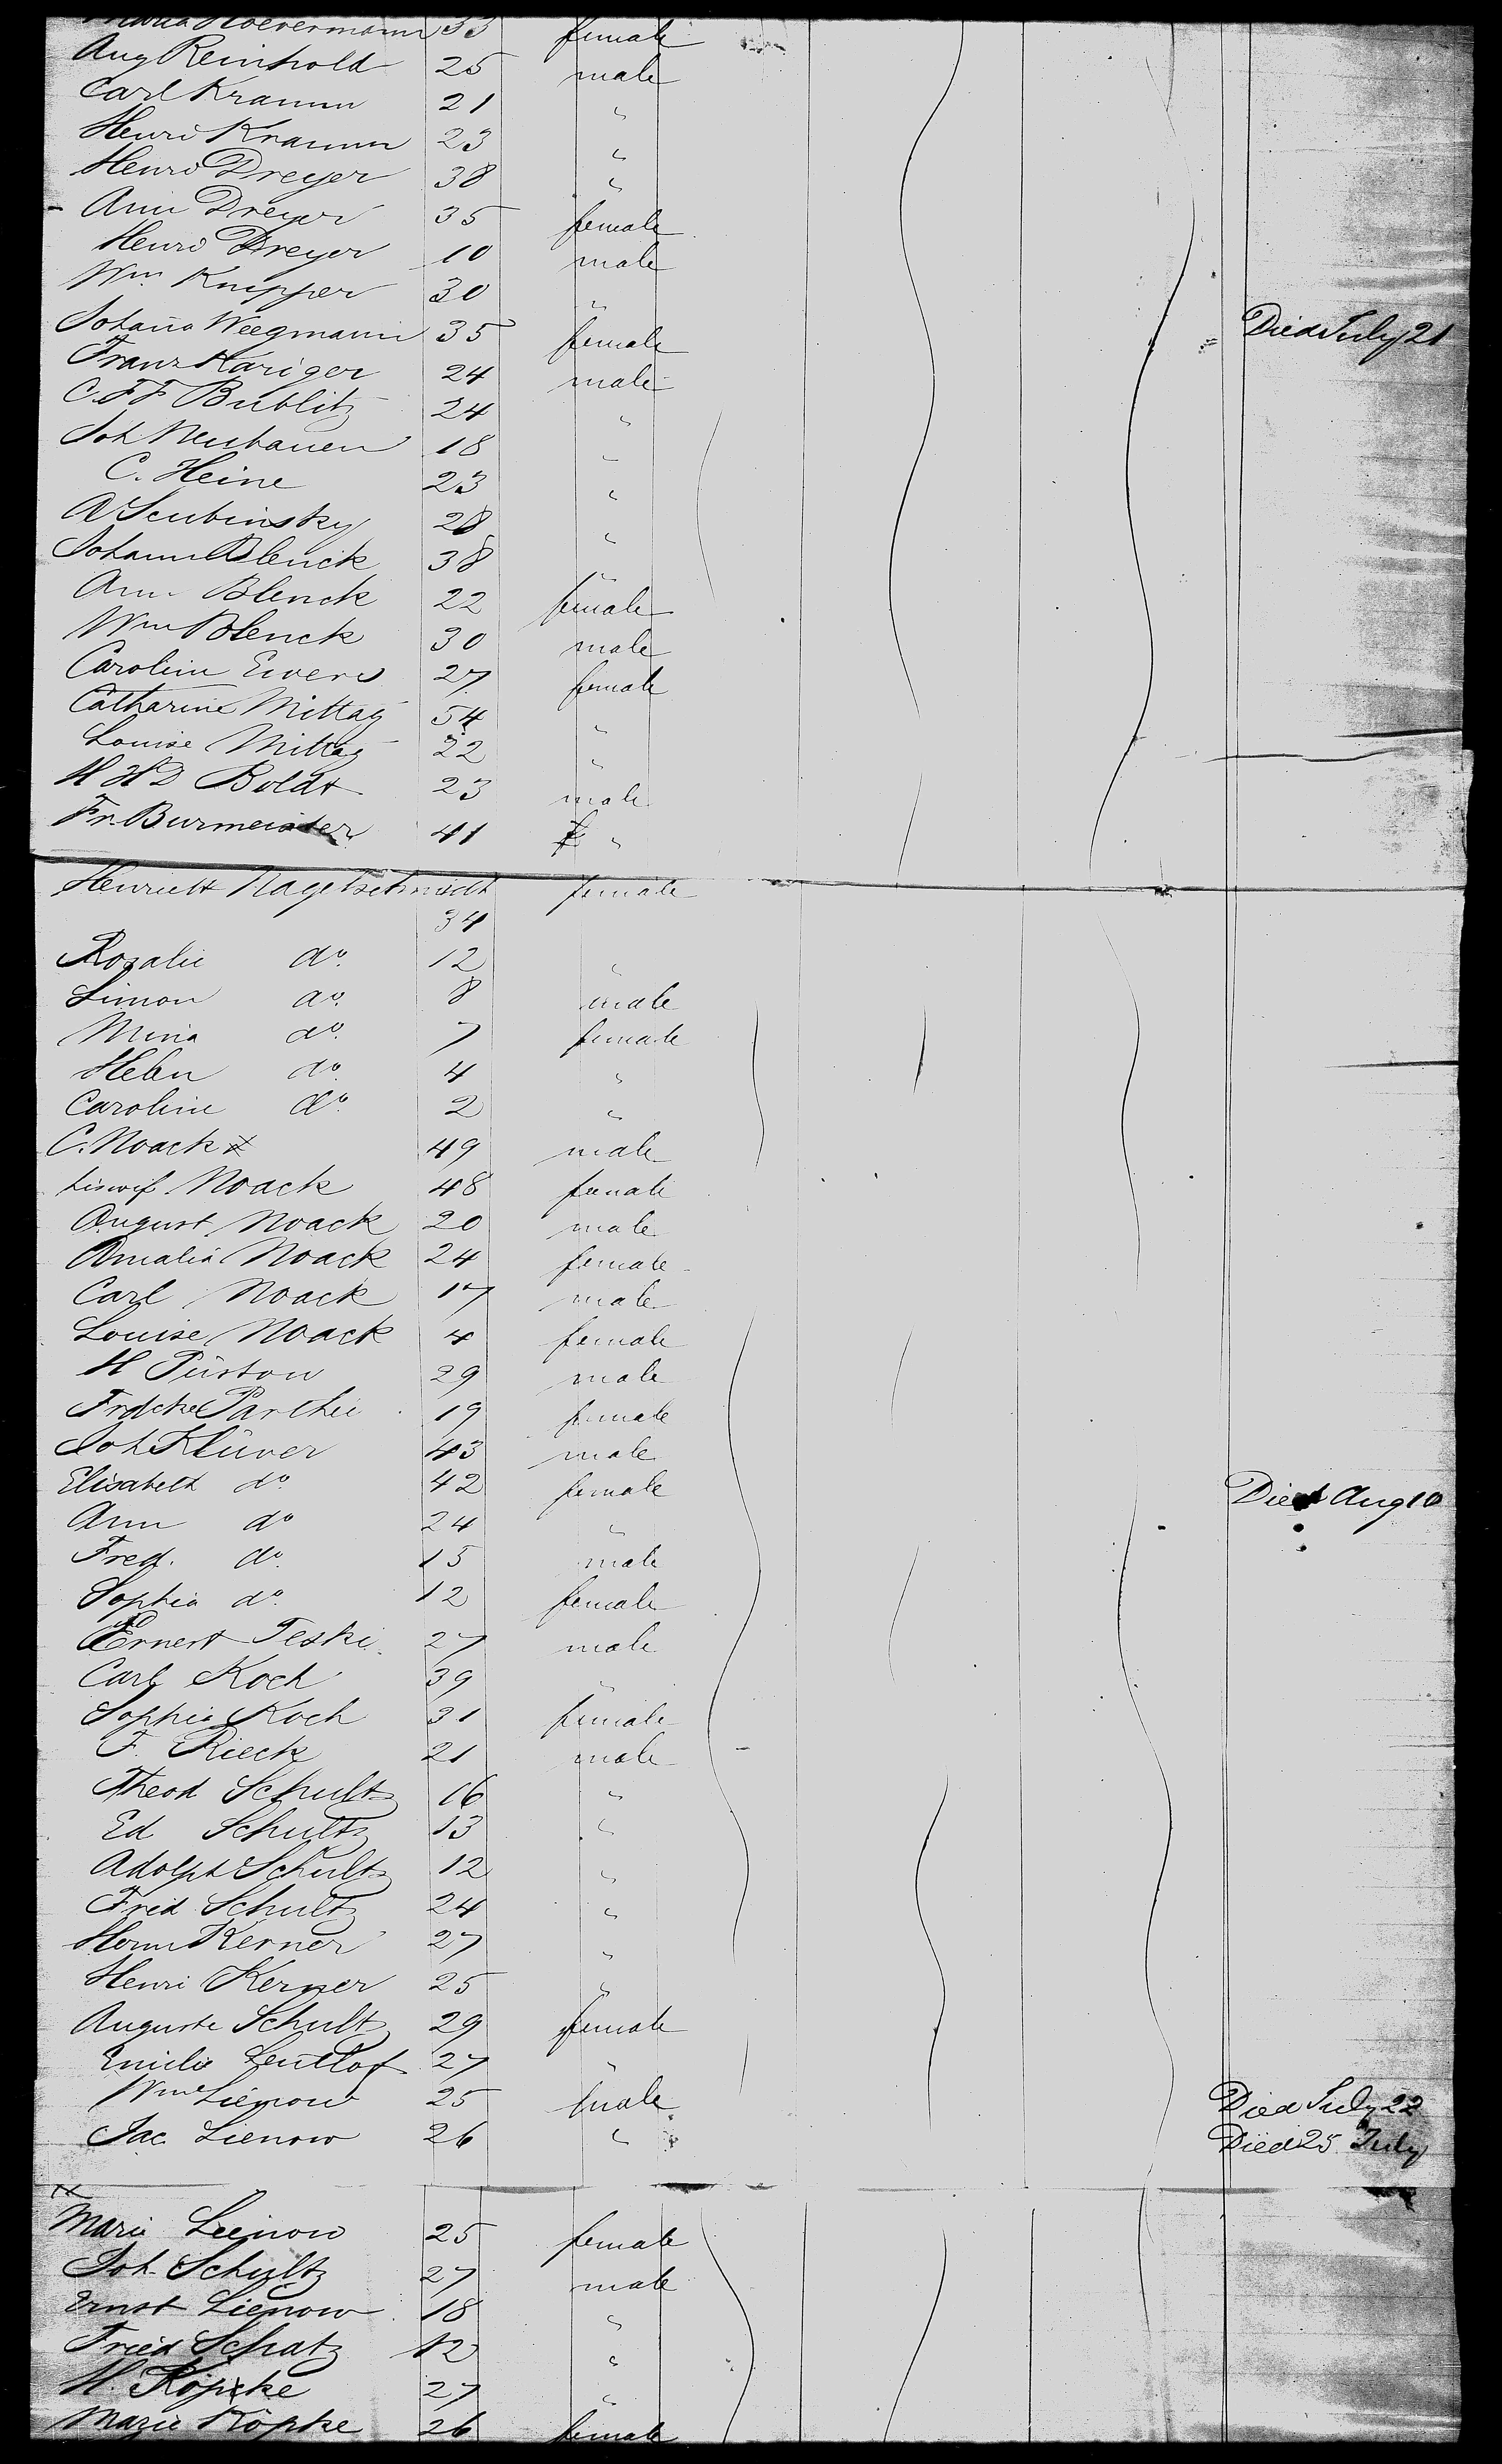 Maria Hoevermann 33 female
Aug Reinhold 25 male
Carl Kramm 21 "
Henri Kramm 23 "
Henri Dreyer 38 "
Ann Dreyer 35 female
Henri Dreyer 10 male
Wm Knipper 30 "
Johana Weegmann 35 female Died July 21
Franz Kariger 24 male
C. F F Bublitz 24 "
Joh Neubauer 18 "
C. Heine 23 "
A Scubinsky 28 "
Johann Blenck 38 "
Ann Blenck 22 female
Wm Blenck 30 male
Carolin Ewers 27 female
Catharine Mittag 54 "
Louise Mittag 22 "
H H D Boldt 23 male
Fr. Burmeister 41 "
Henriett Nagelschmidt female
34
Rosalie do. 12 "
Simon do. 8 male
Mina do. 7 female
Helen do. 4 "
Caroline do. 2 "
C. Noack 49 male
his wif Noack 48 female
August Noack 20 male
Amalia Noack 24 female
Carl Noack 17 male
Louise Noack 4 female
H Püstow 29 male
Frdcke 19 female
Joh Klüver 43 male
Elisabeth do. 42 female Died Aug 10
Ann do 24 "
Fred. do. 15 male
Sophia do. 12 female
Ernest Teski 27 male
Carl Koch 39 "
Sophia Koch 31 female
F. Rieck 21 male
Theod Schultz 16 "
Ed Schultz 13 "
Adolph Schultz 12 "
Fried Schultz 24 "
Herm Kerner 27 "
Henri Kerner 25 "
Auguste Schultz 29 female
Emilie 27 "
Wm Lienow 25 male Died July 22
Jac Lienow 26 " Died 25 July
Marie Lienow 25 female
Joh. Schultz 27 male
Ernst Lienow 18 "
Fried Schatz 12 "
H. Köpcke 27 "
Marie Köpke 26 female